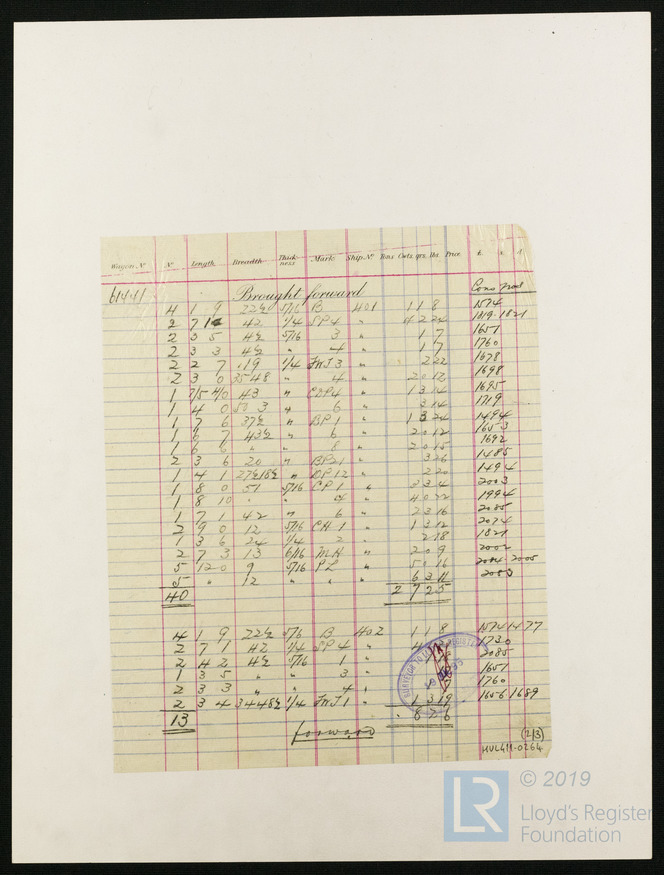 Wagon Nº Nº Length Breadth Thickness Mark Ship Nº Tons Cwts. qrs. lbs. Price £ s d
61441 Brought forward Cons prod
4 1 9 22½ 5/16 B 401 1 1 8 1574
2 7 1 42 1/4 SP4 " 4 2 24 1819-1821
2 3 5 4½ 5/16 3 " 1 7 1651
2 3 3 4½ " 4 " 1 7 1760
2 2 7 19 1/4 3 " 2 22 1678
2 3 0 35 48 " 4 " 2 0 12 1698
1 7/5 4/0 43 " " 1 3 14 1695
1 4 0 3 " 6 " 3 14 1719
1 7 6 37½ " BP1 " 1 3 24 1494
1 6 7 43½ " 6 " 2 0 12 1653
1 6 6 " " 8 " 2 0 15 1692
2 3 6 20 " " 3 26 1485
1 4 1 27½ 18½ " " 2 20 1494
1 8 0 51 5/16 CP1 " 2 3 4 2003
1 8 10 " " " 4 0 22 1994
1 7 1 42 " 6 " 2 3 16 2085
2 9 0 12 5/16 CH 1 " 1 3 12 2074
1 3 6 24 1/4 2 " 2 18 1821
2 7 3 13 6/16 MH " 2 0 9 2002
5 12 0 9 5/16 PL " 5 0 16 2005
5 " 12 " " " 6 3 11 2083
40 2 7 2 5
4 1 9 22½ 5/16 B 402 1 1 8 1574 1477
2 7 1 42 1/4 SP 4 " 1730
2 4 2 4½ 5/16 1 " 2085
1 3 5 " " 3 " 1651
2 3 3 " " 4 " 1760
2 3 4 34 48½ 1/4 1 " 1 3 19 1656 1689
13 8 2 6
forward
SURVEYOR TO LLOYD'S REGISTER
(2/3)
HUL411-0264
© 2019
LR
Lloyd's Register
Foundation